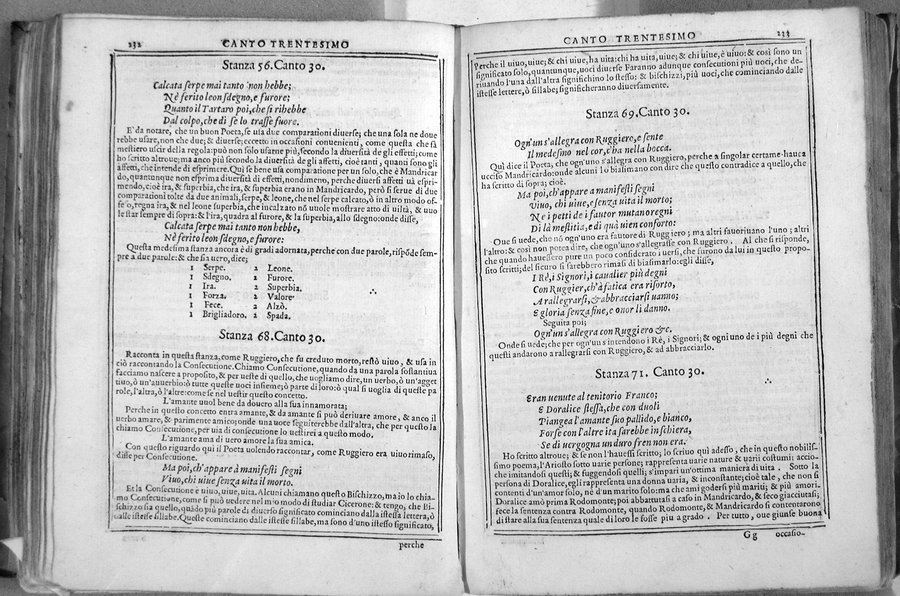 232 CANTO TRENTESIMO
Stanza 56. Canto 30.
Calcata serpe mai tanto non hebbe;
Nè ferito leon sdegno, e furore;
Quanto il Tartaro poi, che si rihebbe
Dal colpo, che di se lo trasse fuore.
E' da notare, che un buon Poeta, se usa due comparationi diuerse; che una sola ne doue
rebbe usare, non che due; & diuerse; eccetto in occasioni conuenienti, come questa che fà
mestero uscir della regola: può non solo usarne più, secondo la diuersità de gli effetti; come
ho scritto altroue; ma anco più secondo la diuersità de gli affetti, cioè tanti, quanti sono gli
affetti, che intende di esprimere. Quì se bene usa comparatione per un solo, che è Mandricar
do, quantunque non esprima diuersità di effetti, nondimeno, perche diuersi affetti uà espri-
mendo, cioè ira, & superbia, che ira, & superbia erano in Mandricardo, però si serue di due
comparationi tolte da due animali, serpe, & leone, che nel serpe calcato, ò in altro modo of-
feso, regna ira, & nel leone superbia, che incalzato nō uuole mostrare atto di uiltà, & uuo
le star sempre di sopra: & l'ira, quadra al furore, & la superbia, allo sdegno: onde disse,
Calcata serpe mai tanto non hebbe,
Nè ferito leon sdegno, e furore:
Questa medesima stanza ancora è di gradi adornata, perche con due parole, rispōde sem-
pre a due parole: & che sia uero, dice;
1 Serpe. 2 Leone.
1 Sdegno. 2 Furore.
1 Ira. 2 Superbia.
1 Forza. 2 Valore
1 Fece. 2 Alzò.
1 Brigliadoro. 2 Spada.
Stanza 68. Canto 30.
Racconta in questa stanza, come Ruggiero, che fu creduto morto, restò uiuo, & usa in
ciò raccontando la Consecutione. Chiamo Consecutione, quando da una parola sostantiua
facciamo nascere a proposito, & per ueste di quello, che uogliamo dire, un uerbo, ò un'agget
tiuo, ò un'auuerbio: ò tutte queste uoci insieme; ò parte di loro: ò qual si uoglia di queste pa
role, l'altra, ò l'altre: come se nel uestir questo concetto.
L'amante uuol bene da douero alla sua innamorata;
Perche in questo concetto entra amante, & da amante si può deriuare amore, & anco il
uerbo amare, & parimente amico: onde una uoce seguiterebbe dall'altra, che per questo la
chiamo Consecutione, per uia di consecutione lo uestirei a questo modo,
L'amante ama di uero amore la sua amica.
Con questo riguardo qui il Poeta uolendo raccontar, come Ruggiero era uiuo rimaso,
disse per Consecutione.
Ma poi, ch'appare à manifesti segni
Viuo, chi uiue senza uita il morto.
Et la Consecutione è uiuo, uiue, uita. Alcuni chiamano questo Bischizzo, ma io lo chia-
mo Consecutione, come si può uedere nel mio modo di studiar Cicerone: & tengo, che Bi-
schizzo sia quello, quādo più parole di diuerso significato cominciano dalla istessa lettera, ò
dalle istesse sillabe. Queste cominciano dalle istesse sillabe, ma sono d'uno istesso significato,
perche
CANTO TRENTESIMO 233
Perche il uiuo, uiue; & chi uiue, ha uita: chi ha uita, uiue; & chi uiue, è uiuo: & così sono un
significato solo, quantunque, uoci diuerse Faranno adunque consecutioni più uoci, che de-
riuando l'una dall'altra significhino lo stesso; & bischizzi, più uoci, che cominciando dalle
istesse lettere, ò sillabe; significheranno diuersamente.
Stanza 69. Canto 30.
Ogn'un s'allegra con Ruggiero, e sente
Il medesmo nel cor, c'ha nella bocca.
Quì dice il Poeta, che ogn'uno s'allegra con Ruggiero, perche a singolar certame hauea
ucciso Mandricardo: onde alcuni lo biasimano con dire che questo contradice a quello, che
ha scritto di sopra; cioè.
Ma poi, ch'appare a manifesti segni
Viuo, chi uiue, e senza uita il morto;
Ne i petti de i fautor mutano regni
Di là mestitia, e di quà uien conforto:
Oue si uede, che nō ogn'uno era fautore di Ruggiero; ma altri fauoriuano l'uno; altri
l'altro: & così non potea dire, che ogn'uno s'allegrasse con Ruggiero. Al che si risponde,
che quando hauessero pure un poco considerato i uersi, che furono da lui in questo propo-
sito scritti; del sicuro si sarebbero rimasi di biasimarlo: egli disse,
I Rè, i Signori, i caualier più degni
Con Ruggier, ch'à fatica era risorto,
A rallegrarsi, & abbracciarsi uanno;
E gloria senza fine, e onor li danno.
Seguita poi;
Ogn'un s'allegra con Ruggiero &c.
Onde si uede; che per ogn'un s'intendono i Rè, i Signori; & ogni uno de i più degni che
questi andarono a rallegrarsi con Ruggiero, & ad abbracciarlo.
Stanza 71. Canto 30.
Eran uenute al tenitorio Franco;
E Doralice stessa, che con duoli
Piangea l'amante suo pallido, e bianco,
Forse con l'altre ita sarebbe in schiera,
Se di uergogna un duro fren non era.
Ho scritto altroue; & se non l'hauessi scritto; lo scriuo quì adesso, che in questo nobilis-
simo poema, l'Ariosto sotto uarie persone; rappresenta uarie nature & uarii costumi: accio-
che imitandosi questi; & fuggendosi quelli; s'impari un'ottima maniera di uita. Sotto la
persona di Doralice, egli rappresenta una donna uaria, & inconstante; cioè tale, che non si
contenti d'un'amor solo, nè d'un marito solo: ma che ami godersi più mariti; & più amori.
Doralice amò prima Rodomonte; poi abbattutasi a caso in Mandricardo, & seco giacciutasi;
fece la sentenza contra Rodomonte, quando Rodomonte, & Mandricardo si contentarono
di stare alla sua sentenza quale di loro le fosse piu a grado. Per tutto, oue giunse buona
Gg occasio-